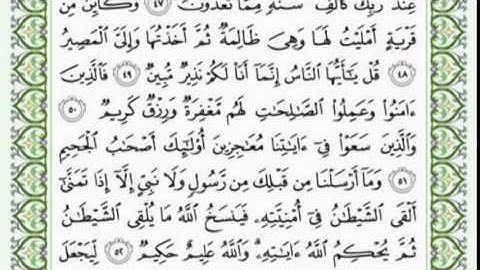 عِندَ رَبِّكَ كَأَلْفِ سَنَةٍ مِّمَّا تَعُدُّونَ ٤٧ وَكَأَيِّن مِّن
قَرْيَةٍ أَمْلَيْتُ لَهَا وَهِىَ ظَالِمَةٌ ثُمَّ أَخَذْتُهَا وَإِلَىَّ الْمَصِيرُ
٤٨ قُلْ يَٰٓأَيُّهَا النَّاسُ إِنَّمَآ أَنَا۠ لَكُمْ نَذِيرٌ مُّبِينٌ ٤٩ فَالَّذِينَ
ءَامَنُوا۟ وَعَمِلُوا۟ الصَّٰلِحَٰتِ لَهُم مَّغْفِرَةٌ وَرِزْقٌ كَرِيمٌ ٥٠
وَالَّذِينَ سَعَوْا۟ فِىٓ ءَايَٰتِنَا مُعَٰجِزِينَ أُو۟لَٰٓئِكَ أَصْحَٰبُ الْجَحِيمِ
٥١ وَمَآ أَرْسَلْنَا مِن قَبْلِكَ مِن رَّسُولٍ وَلَا نَبِىٍّ إِلَّآ إِذَا تَمَنَّىٰٓ
أَلْقَى الشَّيْطَٰنُ فِىٓ أُمْنِيَّتِهِۦ فَيَنسَخُ اللَّهُ مَا يُلْقِى الشَّيْطَٰنُ
ثُمَّ يُحْكِمُ اللَّهُ ءَايَٰتِهِۦ وَاللَّهُ عَلِيمٌ حَكِيمٌ ٥٢ لِّيَجْعَلَ